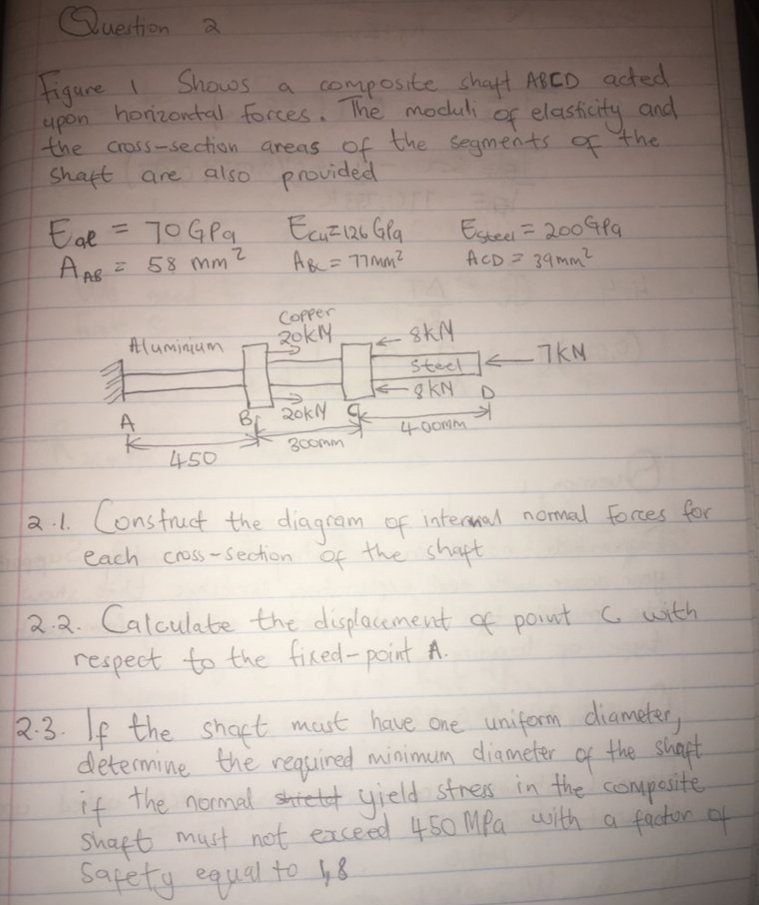 Question 2
Figure 1 Shows a composite shaft ABCD acted
upon horizontal forces. The moduli of elasticity and
the cross-section areas of the segments of the
shaft are also provided
Eal = 70 GPa Ecu=126 GPa Esteel = 200GPa
AAB = 58 mm² ABC = 77mm² ACD = 39mm²
Copper
Aluminium 20kN 8kN
Steel 7KN
8KN D
A B 20kN C
450 300mm 400mm
2.1. Construct the diagram of internal normal forces for
each cross-section of the shaft
2.2. Calculate the displacement of point C with
respect to the fixed-point A.
2.3. If the shaft must have one uniform diameter,
determine the required minimum diameter of the shaft
if the normal yield stress in the composite
shaft must not exceed 450 MPa with a factor of
Safety equal to 1,8